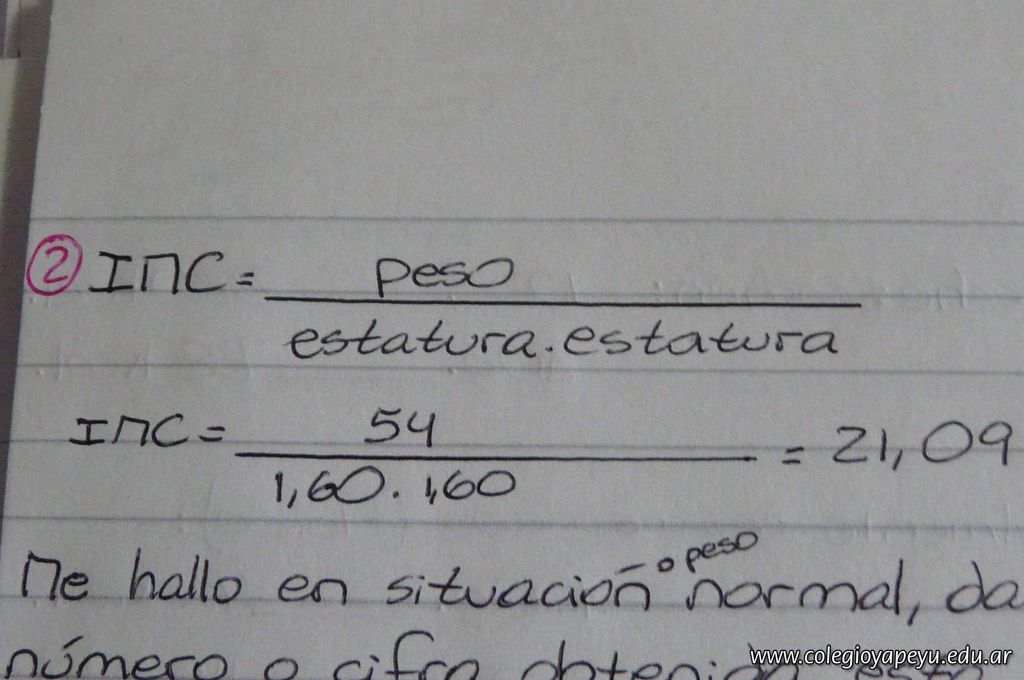 ② IMC = peso
estatura.estatura
IMC = 54 = 21,09
1,60. 1,60
Me hallo en situación o peso normal, da
número o cifra obtenida
www.colegioyapeyu.edu.ar